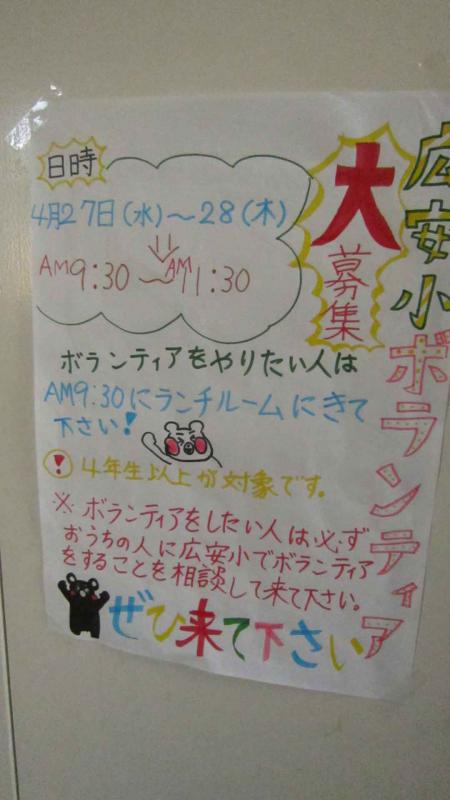 広安小ボランティア
大募集
日時
4月27日(水)～28(木)
AM9:30～AM11:30
ボランティアをやりたい人は
AM9:30にランチルームにきて
下さい!
! 4年生以上が対象です。
※ ボランティアをしたい人は必ず
おうちの人に広安小でボランティア
をすることを相談して来て下さい。
ぜひ来て下さい